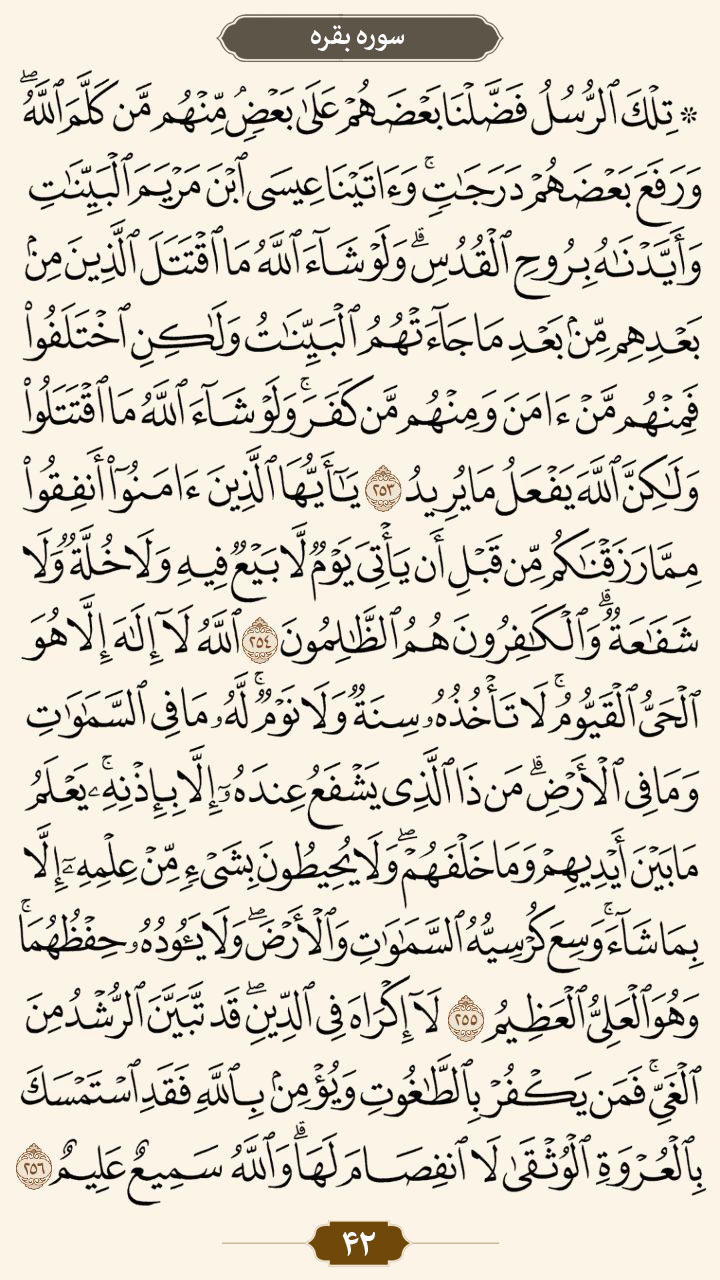 سوره بقره
۞ تِلْكَ ٱلرُّسُلُ فَضَّلْنَا بَعْضَهُمْ عَلَىٰ بَعْضٍۘ مِّنْهُم مَّن كَلَّمَ ٱللَّهُۖ
وَرَفَعَ بَعْضَهُمْ دَرَجَـٰتٍۚ وَءَاتَيْنَا عِيسَى ٱبْنَ مَرْيَمَ ٱلْبَيِّنَـٰتِ
وَأَيَّدْنَـٰهُ بِرُوحِ ٱلْقُدُسِۗ وَلَوْ شَآءَ ٱللَّهُ مَا ٱقْتَتَلَ ٱلَّذِينَ مِنۢ
بَعْدِهِم مِّنۢ بَعْدِ مَا جَآءَتْهُمُ ٱلْبَيِّنَـٰتُ وَلَـٰكِنِ ٱخْتَلَفُوا۟
فَمِنْهُم مَّنْ ءَامَنَ وَمِنْهُم مَّن كَفَرَۚ وَلَوْ شَآءَ ٱللَّهُ مَا ٱقْتَتَلُوا۟
وَلَـٰكِنَّ ٱللَّهَ يَفْعَلُ مَا يُرِيدُ ٢٥٣ يَـٰٓأَيُّهَا ٱلَّذِينَ ءَامَنُوٓا۟ أَنفِقُوا۟
مِمَّا رَزَقْنَـٰكُم مِّن قَبْلِ أَن يَأْتِىَ يَوْمٌ لَّا بَيْعٌ فِيهِ وَلَا خُلَّةٌ وَلَا
شَفَـٰعَةٌۗ وَٱلْكَـٰفِرُونَ هُمُ ٱلظَّـٰلِمُونَ ٢٥٤ ٱللَّهُ لَآ إِلَـٰهَ إِلَّا هُوَ
ٱلْحَىُّ ٱلْقَيُّومُۚ لَا تَأْخُذُهُۥ سِنَةٌ وَلَا نَوْمٌۚ لَّهُۥ مَا فِى ٱلسَّمَـٰوَٰتِ
وَمَا فِى ٱلْأَرْضِۗ مَن ذَا ٱلَّذِى يَشْفَعُ عِندَهُۥٓ إِلَّا بِإِذْنِهِۦۚ يَعْلَمُ
مَا بَيْنَ أَيْدِيهِمْ وَمَا خَلْفَهُمْۖ وَلَا يُحِيطُونَ بِشَىْءٍ مِّنْ عِلْمِهِۦٓ إِلَّا
بِمَا شَآءَۚ وَسِعَ كُرْسِيُّهُ ٱلسَّمَـٰوَٰتِ وَٱلْأَرْضَۖ وَلَا يَـُٔودُهُۥ حِفْظُهُمَاۚ
وَهُوَ ٱلْعَلِىُّ ٱلْعَظِيمُ ٢٥٥ لَآ إِكْرَاهَ فِى ٱلدِّينِۖ قَد تَّبَيَّنَ ٱلرُّشْدُ مِنَ
ٱلْغَىِّۚ فَمَن يَكْفُرْ بِٱلطَّـٰغُوتِ وَيُؤْمِنۢ بِٱللَّهِ فَقَدِ ٱسْتَمْسَكَ
بِٱلْعُرْوَةِ ٱلْوُثْقَىٰ لَا ٱنفِصَامَ لَهَاۗ وَٱللَّهُ سَمِيعٌ عَلِيمٌ ٢٥٦
۴۲